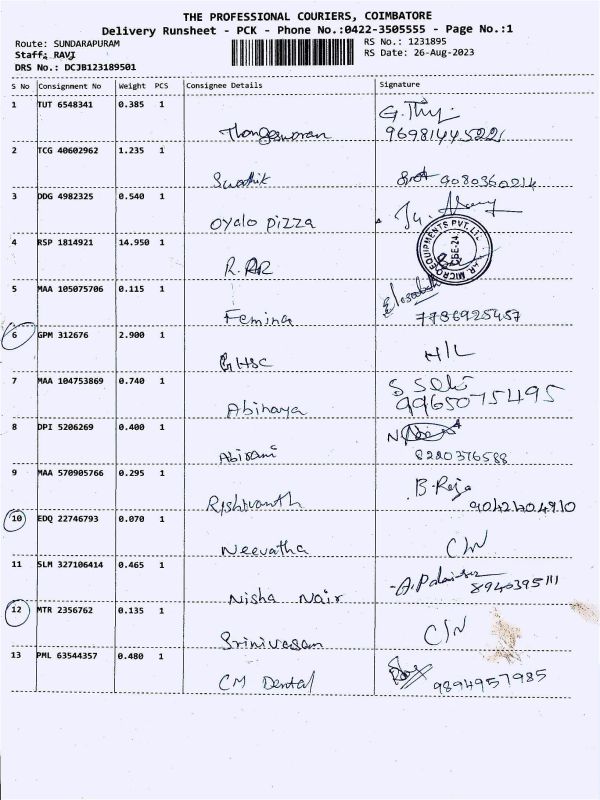 THE PROFESSIONAL COURIERS, COIMBATORE
Delivery Runsheet - PCK - Phone No.:0422-3505555 - Page No.:1
Route: SUNDARAPURAM RS No.: 1231895
Staff: RAVI RS Date: 26-Aug-2023
DRS No.: DCJB123189501
S No Consignment No Weight PCS Consignee Details Signature
1 TUT 6548341 0.385 1
Thangeswaran 9698144522
2 TCG 40602962 1.235 1
Swathik 9080360214
3 DDG 4982325 0.540 1
Oyalo Pizza
4 RSP 1814921 14.950 1
R.RR
5 MAA 105075706 0.115 1
Femina 7786925457
6 GPM 312676 2.900 1
GHSC H/L
7 MAA 104753869 0.740 1
Abinaya 9965075495
8 DPI 5206269 0.400 1
Abirami 8220376588
9 MAA 570905766 0.295 1 B. Raja
Rishivanth 9042404910
10 EDQ 22746793 0.070 1
Neevatha C/N
11 SLM 327106414 0.465 1
Nisha Nair 8940395111
12 MTR 2356762 0.135 1
Srinivasan C/N
13 PML 63544357 0.480 1
CM Dental 9894957985